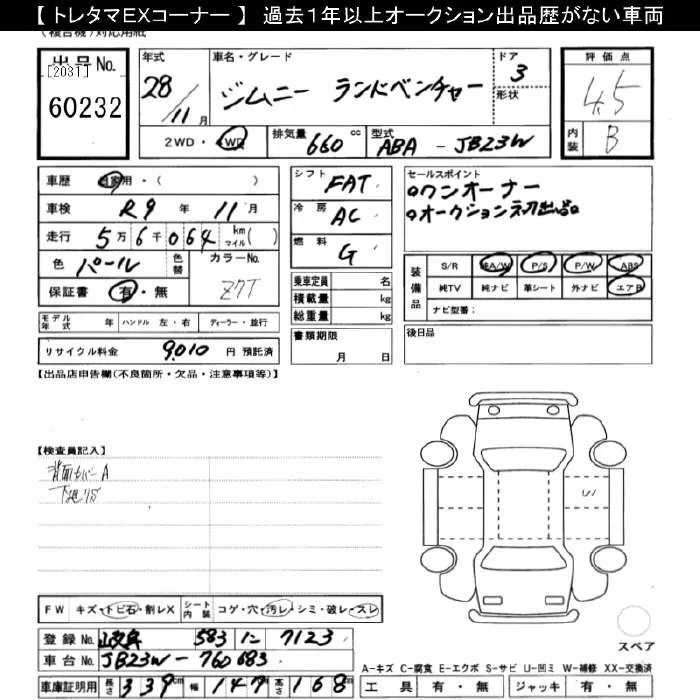 【 トレタマEXコーナー 】 過去1年以上オークション出品歴がない車両
(複合機)対応用紙
出品No.
[2031]
60232
年式
28/11月
車名・グレード
ジムニー ランドベンチャー
ドア
3
形状
評価点
4.5
内装
B
2WD・4WD
排気量
660 cc
型式
ABA - JB23W
車歴
自家用・( )
車検
R9 年 11月
走行
5万6千064 km マイル( )
色
パール
色替
カラーNo.
Z7T
保証書
有・無
シフト
FAT
冷房
AC
燃料
G
乗車定員 名
積載量 kg
総重量 kg
書類期限
月 日
セールスポイント
ワンオーナー
オークション初出品
装備品
S/R
純A/W
P/S
P/W
ABS
純TV
純ナビ
革シート
外ナビ
エアB
ナビ型番:
後日品
モデル年式 年
ハンドル 左・右
ディーラー・並行
リサイクル料金
9,010 円 預託済
【出品店申告欄(不良箇所・欠品・注意事項等)】
【検査員記入】
背面カバーA
下廻りS
S
FW キズ・トビ石・割レX
シート内装 コゲ・穴・汚レ・シミ・破レ・スレ
登録No.
583 に 7123
車台No.
JB23W-760683
車庫証明用
長さ 339cm 幅 147cm 高さ 168cm
スペア
A-キズ C-腐食 E-エクボ S-サビ U-凹ミ W-補修 XX-交換済
工具 有・無
ジャッキ 有・無